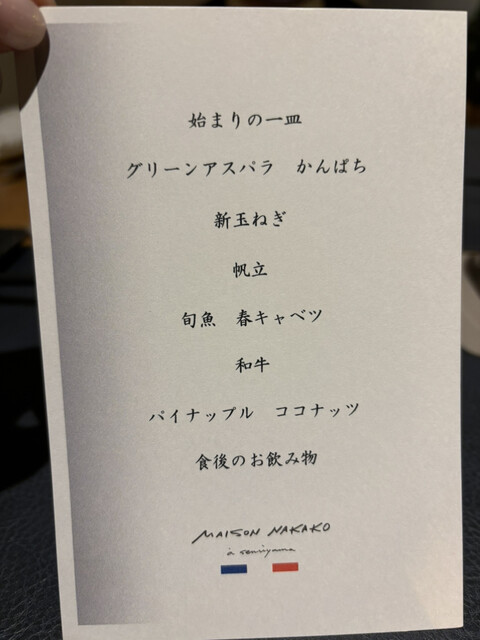 始まりの一皿
グリーンアスパラ　かんぱち
新玉ねぎ
帆立
旬魚　春キャベツ
和牛
パイナップル　ココナッツ
食後のお飲み物
MAISON NAKAKO
à senriyama